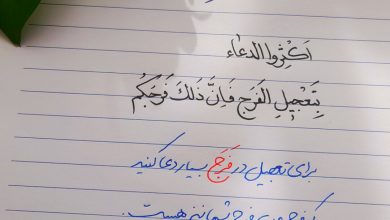 اَکْثِرُوا الدُعٰاء
بِتَعْجیلِ الفَرَجِ فَاِنَّ ذٰلِکَ فَرَجَکُم
برای تعجیل در فَرَج بسیار دعا کنید
که فرج من فرج شما نیز هست.